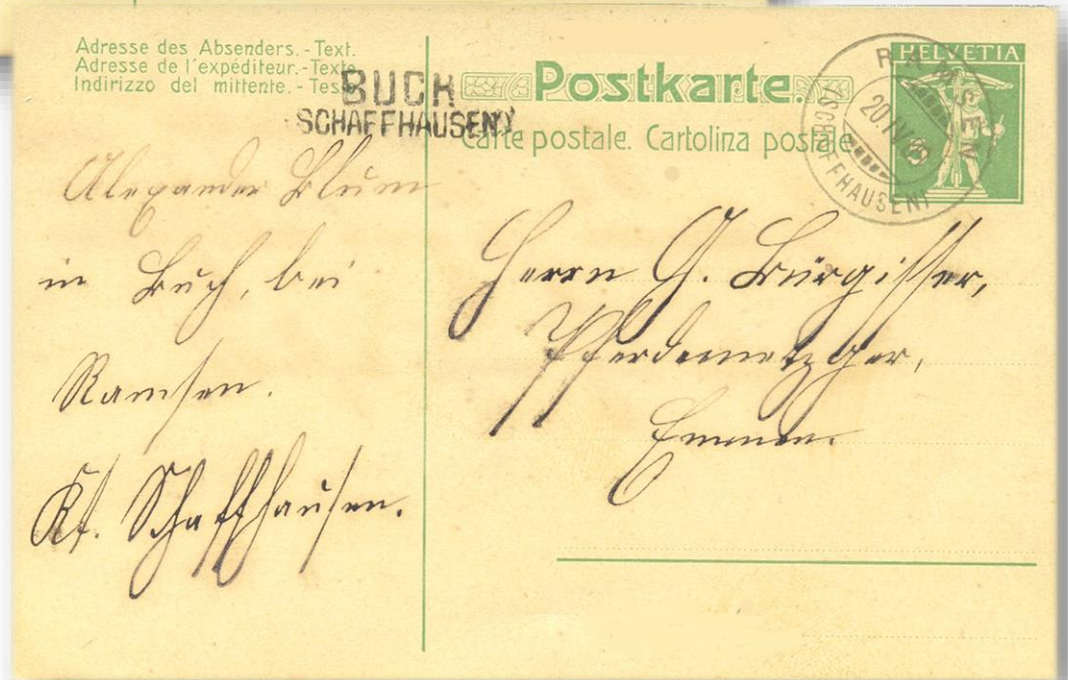 Adresse des Absenders.-Text.
Adresse de l'expéditeur.-Texte.
Indirizzo del mittente.-Testo
BUCH
SCHAFFHAUSEN)
Postkarte.
Carte postale. Cartolina postale
HELVETIA
RAMSEN
20.IV.
(SCHAFFHAUSEN)
Alexander Blum
in Buch, bei
Ramsen.
Kt. Schaffhausen.
Herrn G. Bürgisser,
Pferdemetzger,
Emmen.